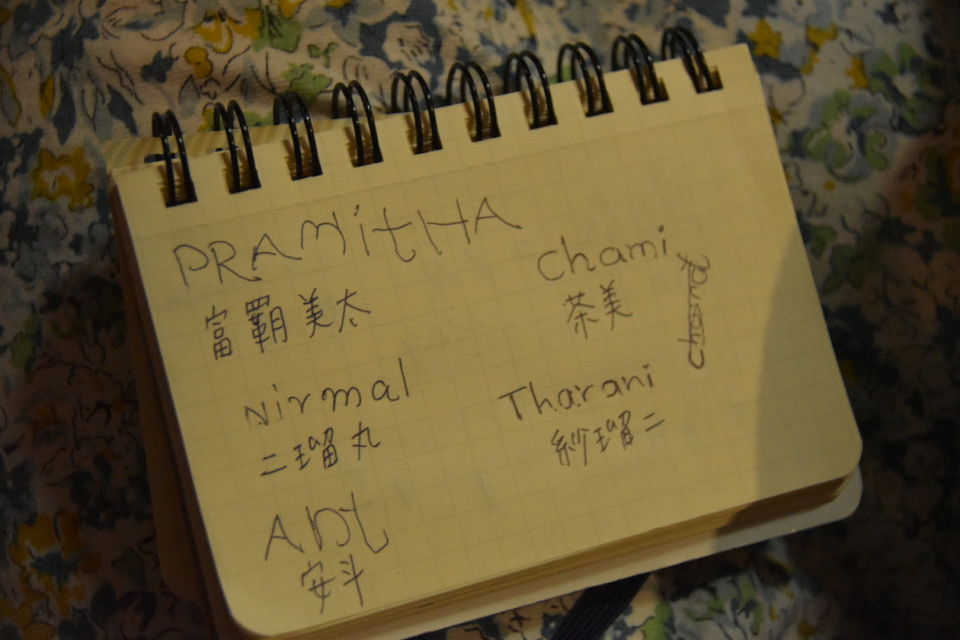 PRAMitHA
富覇美太
Nirmal
二瑠丸
ANt
安斗
Chami
茶美
Tharani
紗瑠二